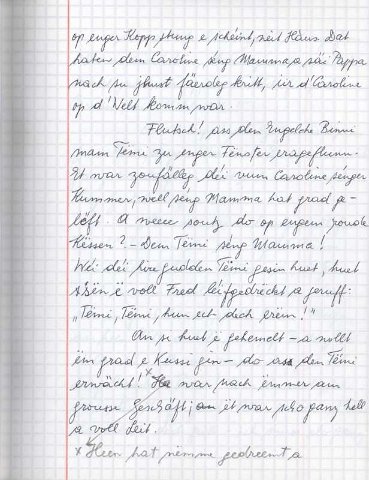 op enger Kopp stung e schéint, néit Haus. Dat
haten dem Caroline séng Mamma a säi Pappa
nach su jhust fäerdeg kritt, iir d'Caroline
op d'Welt komm war.
Flutsch! ass den Engelche Binni
mam Témi zu enger Fënster erageflunn.
Et war zoufälleg déi vum Caroline senger
Kummer, well seng Mamma hat grad ge-
lëft. A weeee souz do op engem
Këssen? - Dem Témi séng Mamma!
Wéi déi hire gudden Témi gesin huet, huet
sin ë voll Fred léifgedréckt a geruff:
"Témi, Témi, hun ech dech erëm!"
An si huet ë gehemelt - a nollt
ëm grad e Kussi gin - do ass den Témi
erwächt! x He war nach ëmmer am
grousse Geschäft; an ët war scho ganz hell
a voll Leit.
x Heen hat nëmme gedreemt a